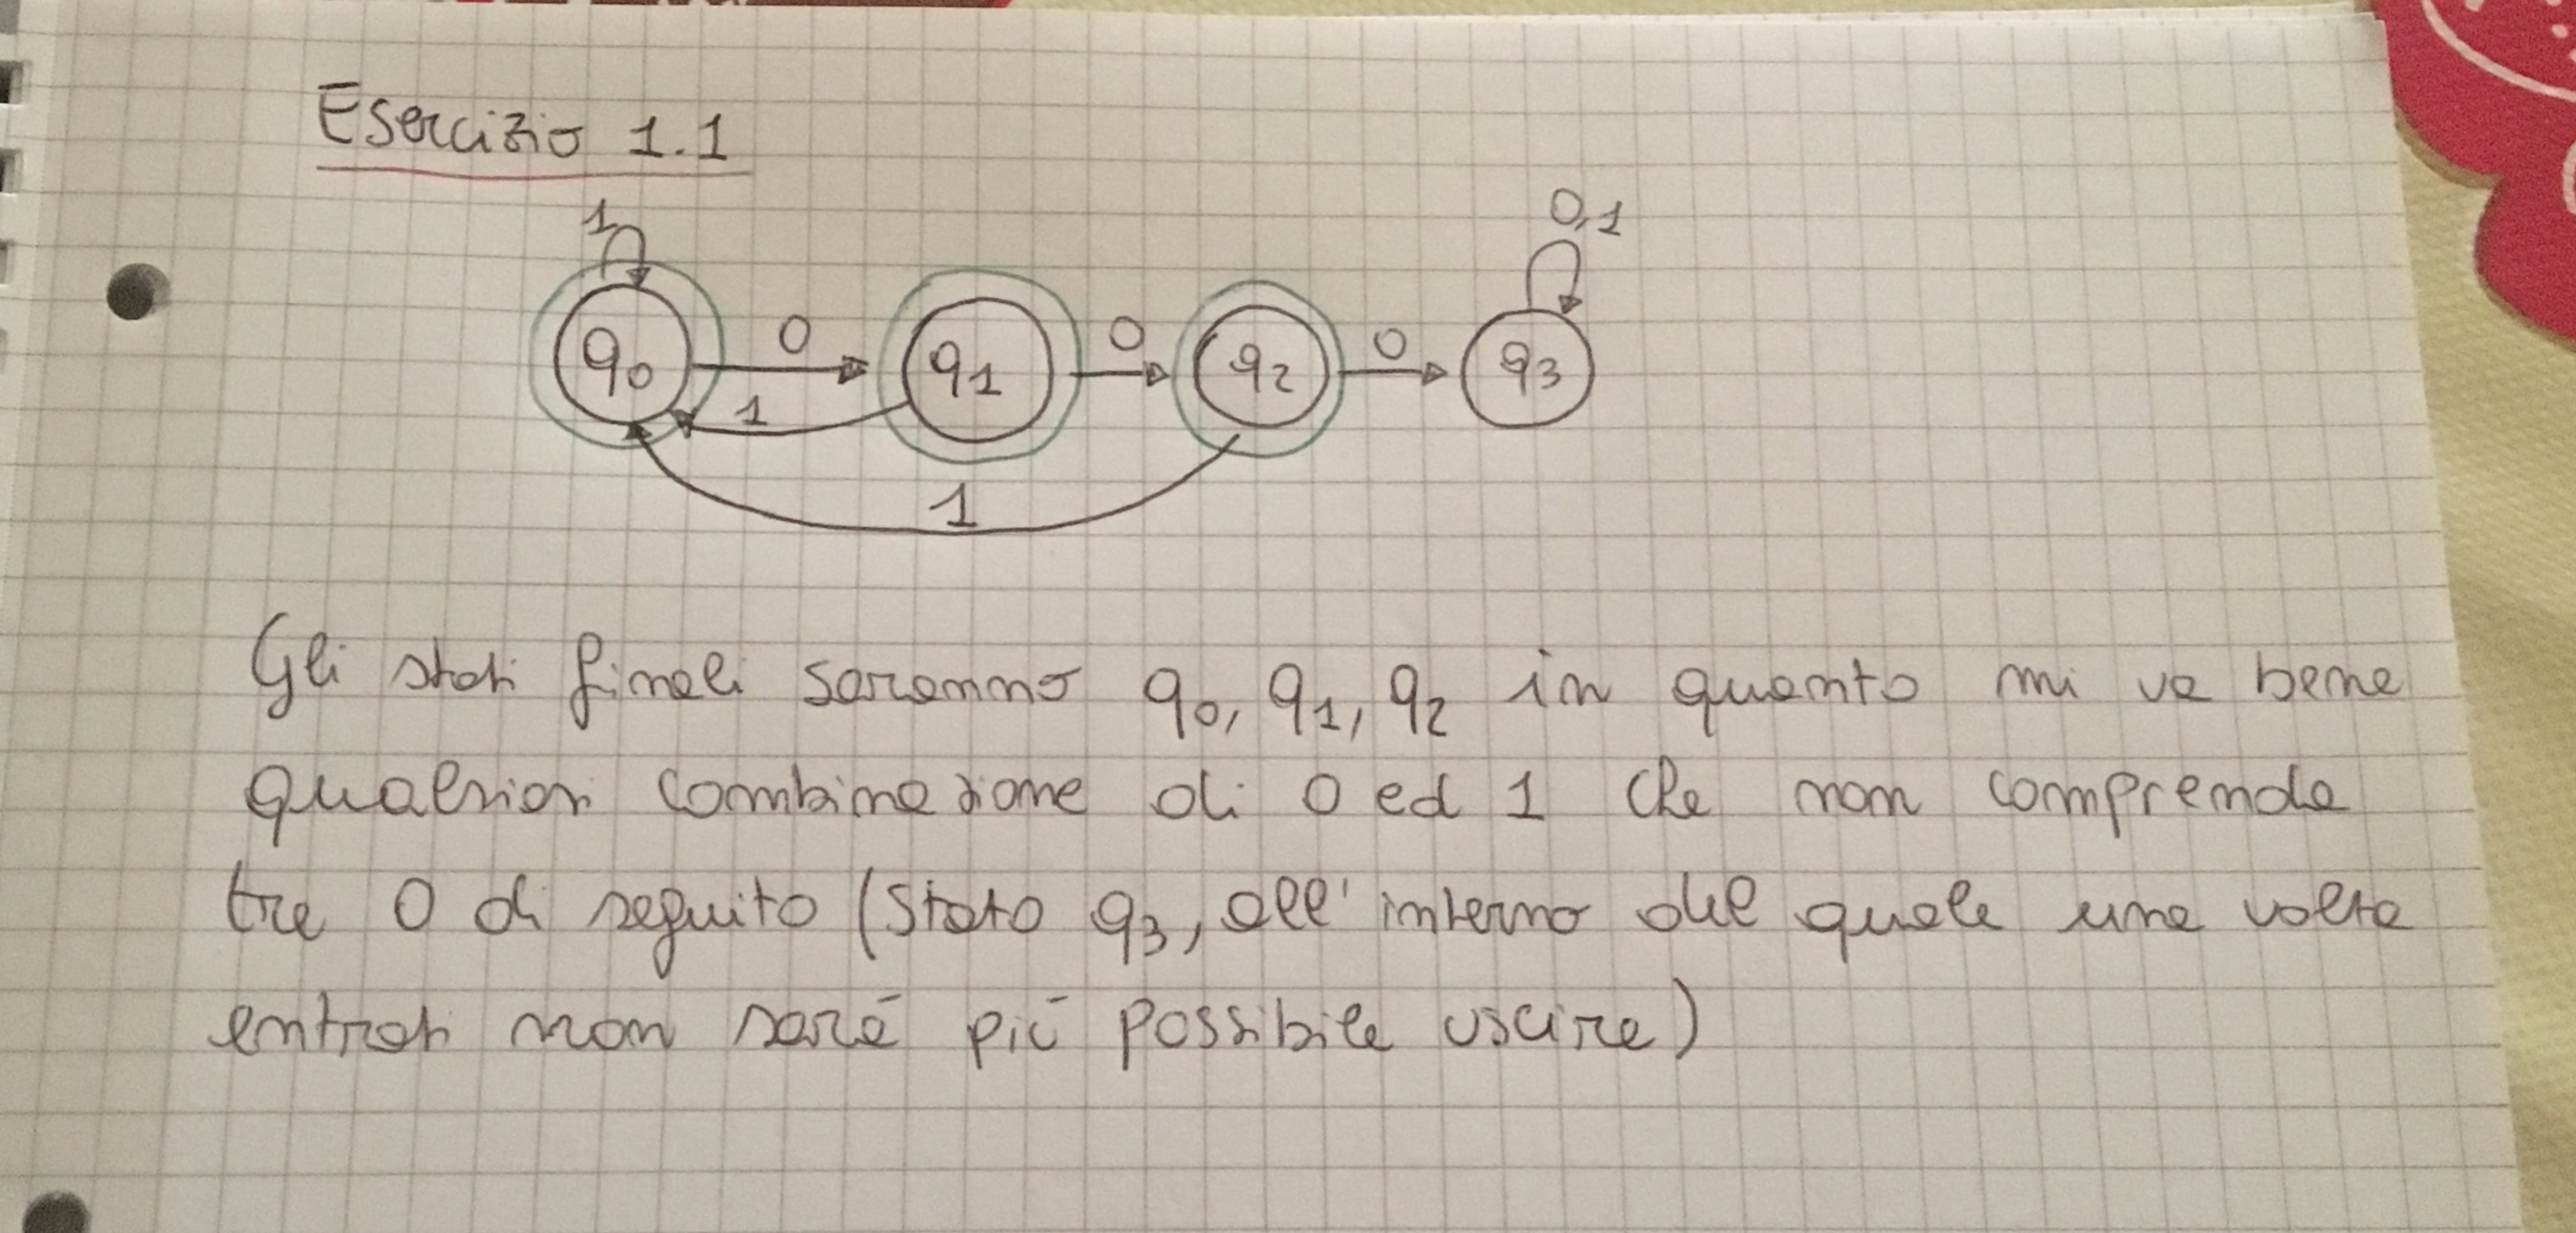 Esercizio 1.1
1
0,1
q0 0 q1 0 q2 0 q3
1
1
Gli stati finali saranno q0, q1, q2 in quanto mi va bene
qualsiasi combinazione di 0 ed 1 che non comprenda
tre 0 di seguito (stato q3, all'interno del quale una volta
entrati non sarà più possibile uscire)